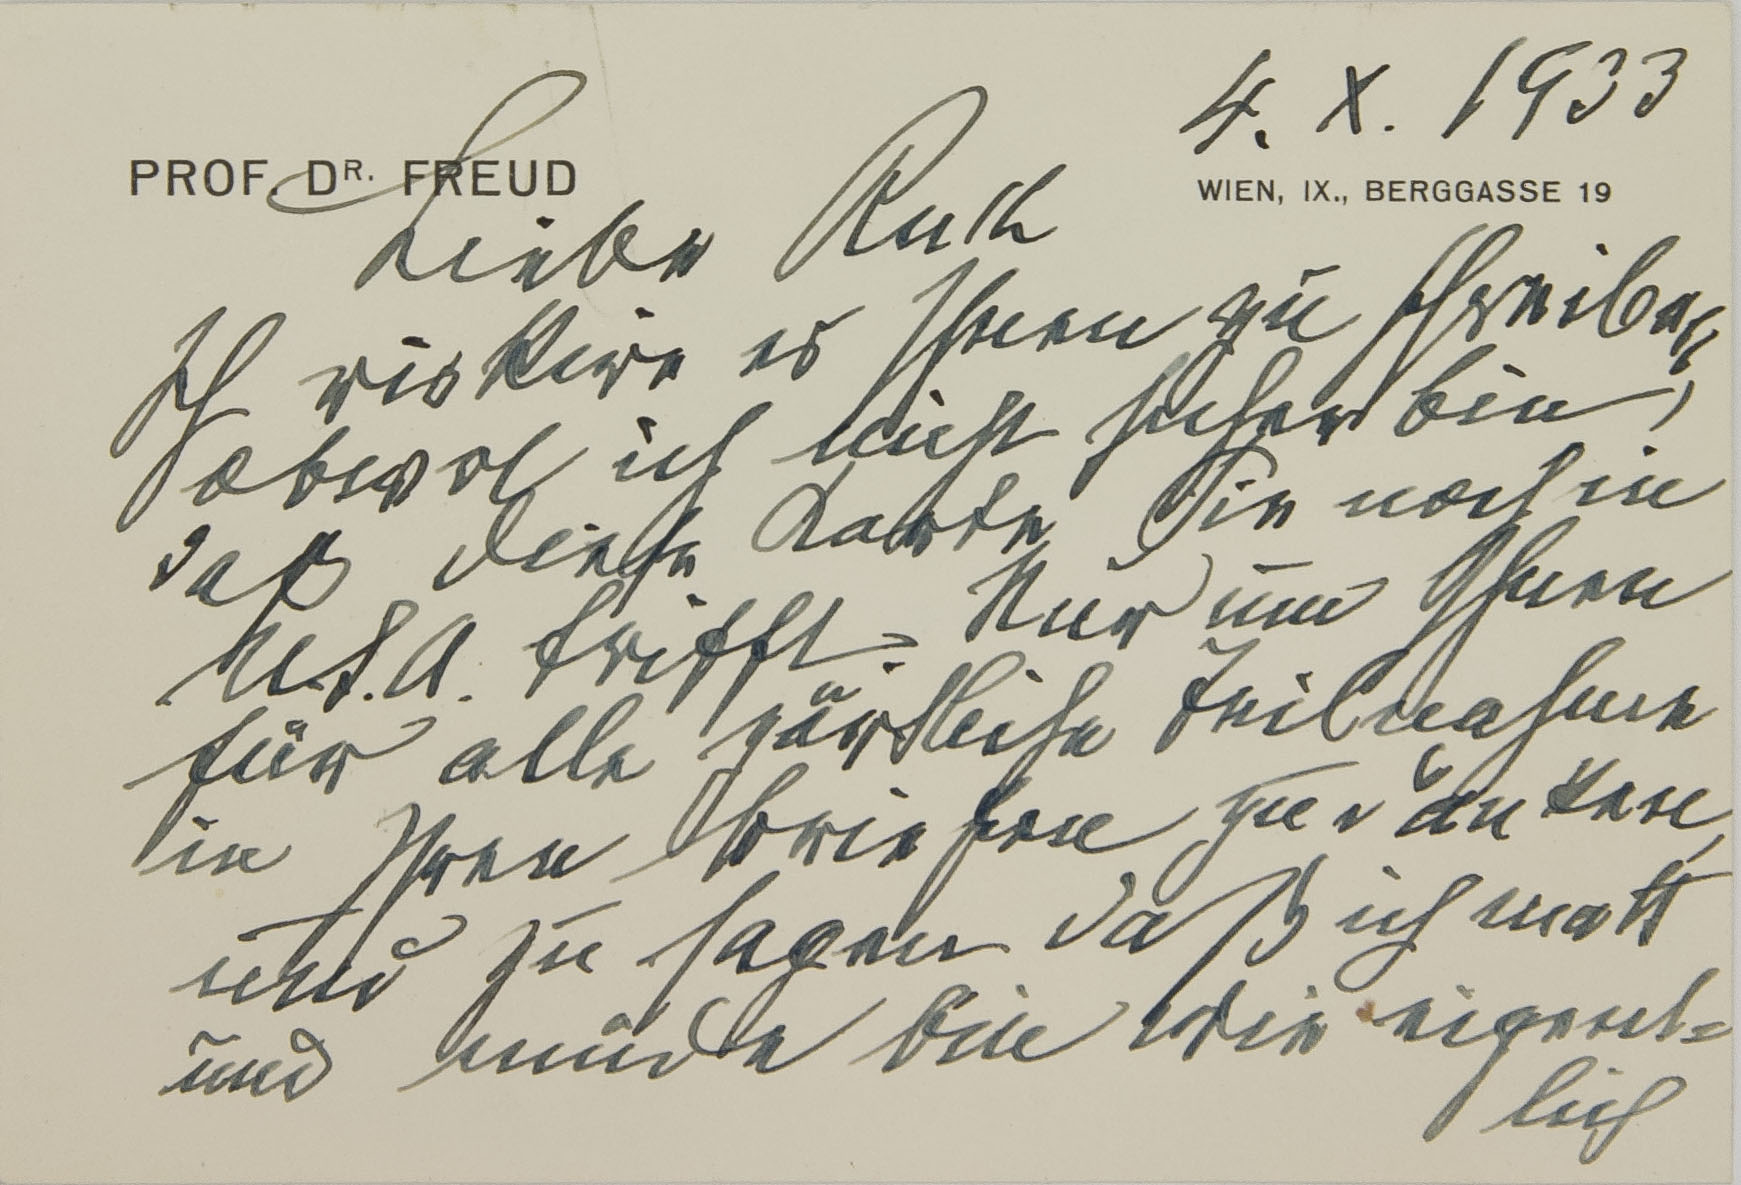 4. X. 1933
PROF. DR. FREUD
WIEN, IX., BERGGASSE 19
Liebe Ruth
Ich riskire es Ihnen zu schreiben,
obwol ich nicht sicher bin,
daß diese Karte Sie noch in
U.S.A. trifft. Nur um Ihnen
für alle zärtliche Teilnahme
in Ihren Briefen zu danken,
und zu sagen daß ich matt
und müde bin wie eigent=
lich